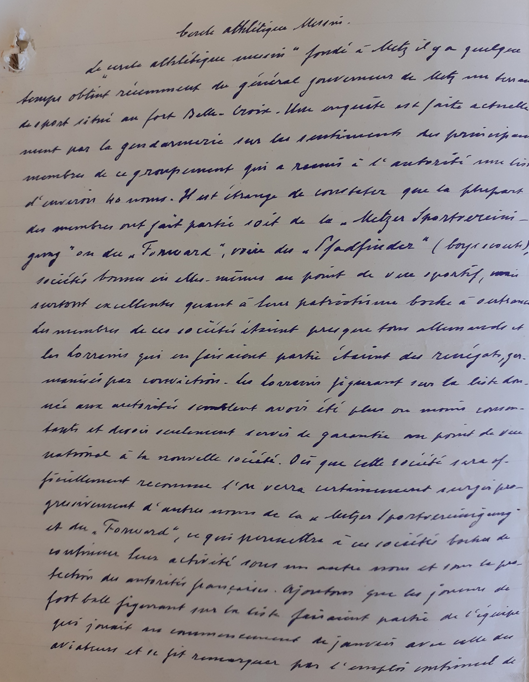 Cercle athlétique Messin.
Le "cercle athlétique messin" fondé à Metz il y a quelque
temps obtint récemment du général gouverneur de Metz un terrain
de sport situé au fort Belle-Croix. Une enquête est faite actuelle-
ment par la gendarmerie sur les sentiments des principaux
membres de ce groupement qui a remis à l'autorité une liste
d'environ 40 noms. Il est étrange de constater que la plupart
des membres ont fait partie soit de la „Metzer Sportverein-
gung" ou du „Forward", voire des „Pfadfinder" (boys scouts),
sociétés bonnes en elles-mêmes au point de vue sportif, mais
surtout excellentes quant à leur patriotisme boche à outrance
Les membres de ces société étaient presque tous allemands et
les lorrains qui en faisaient partie étaient des renégats, ger-
manisés par conviction. Les lorrains figurant sur la liste don-
née aux autorités semblent avoir été plus ou moins consen-
tants et devoir seulement servir de garantie au point de vue
national à la nouvelle société. Dès que celle société sera of-
ficiellement reconnue l'on verra certainement surgir pro-
gressivement d'autres noms de la „Metzer Sportvereinigung"
et du „Forward", ce qui permettra à ces société boches de
continuer leur activité sous un autre nom et sous la pro-
tection des autorités françaises. Ajoutons que les joueurs de
foot ball figurant sur la liste faisaient partie de l'équipe
qui jouait au commencement de janvier avec celle des
aviateurs et se fit remarquer par l'emploi continuel de